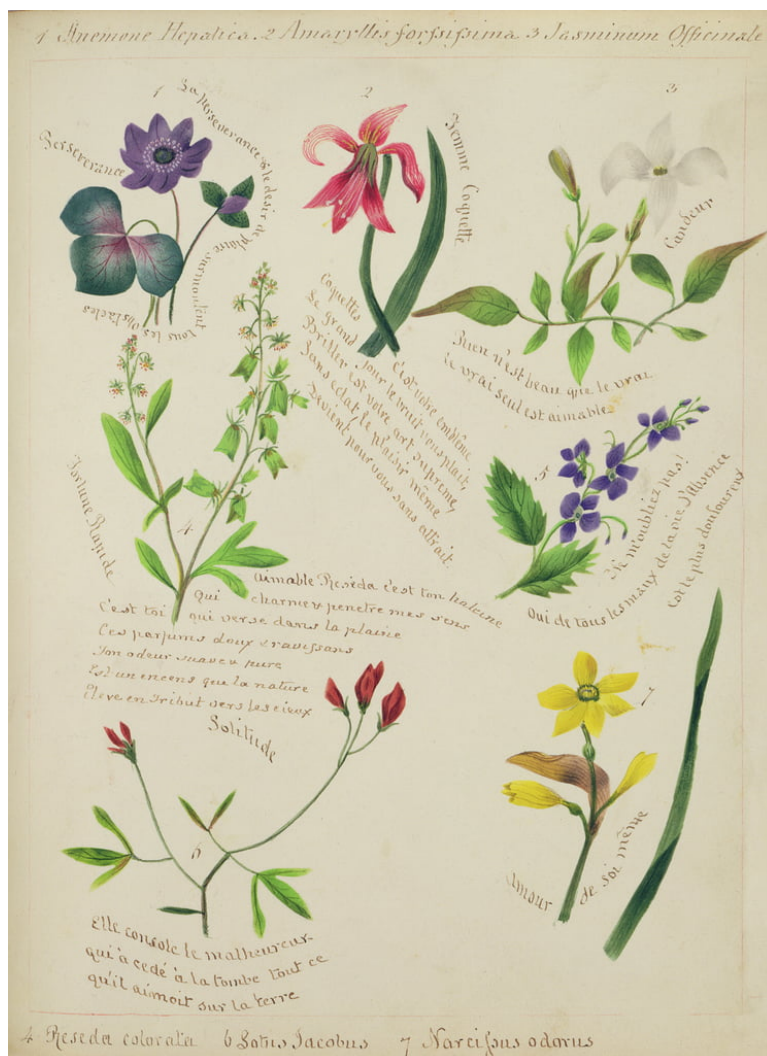 1 Anemone Hepatica. 2 Amaryllis forsissima 3 Jasminum Officinale
1
Perseverance
La perseverance & le desir de plaire surmontent tous les Obstacles
2
Femme Coquette
Coquettes c'est votre emblême
Le grand jour le bruit vous plait,
Briller est votre art suprême,
Sans eclat le plaisir même
Devient pour vous sans attrait
3
Candeur
Rien n'est beau que le vrai
le vrai seul est aimable
4
Fortune Rapide
aimable Reséda c'est ton haleine
qui charme & penetre mes sens
C'est toi qui verse dans la plaine
Ces parfums doux & ravissans
Ton odeur suave & pure
Est un encens que la nature
Elève en tribut vers les cieux
5
Ne m'oubliez pas!
Oui de tous les maux de la vie l'Absence
est le plus douloureux
Solitude
6
Elle console le malheureux
qui à cedé à la tombe tout ce
qu'il aimoit sur la terre
7
Amour de soi même
4 Reseda colorata 6 Lotus Jacobus 7 Narcissus odorus